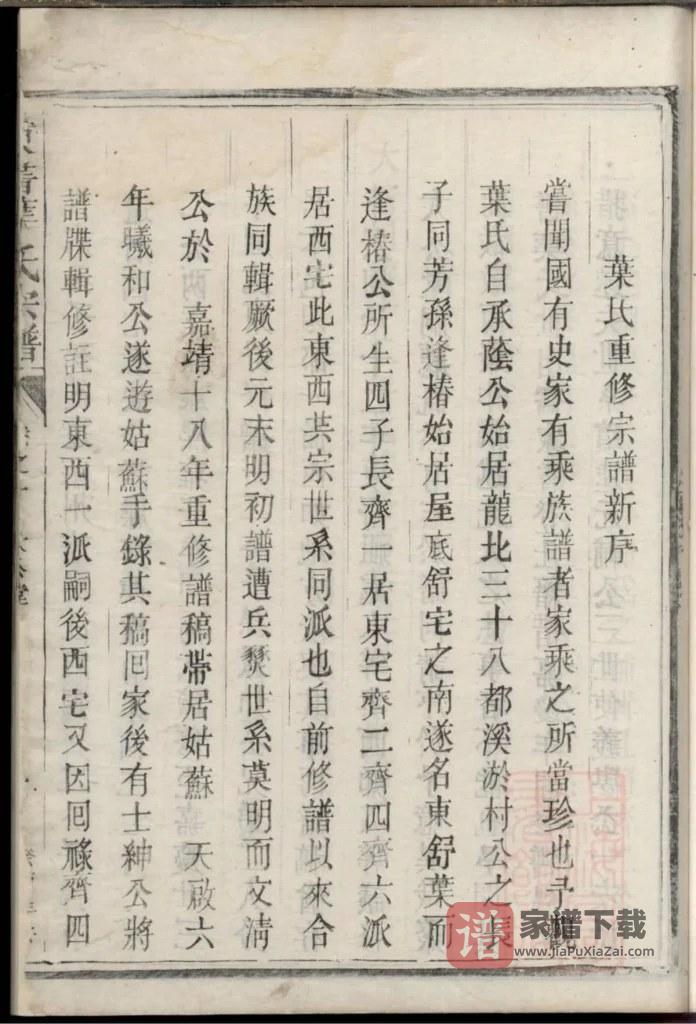 葉氏重修宗譜新序
嘗聞國有史家有乘族譜者家乘之所當珍也予觀
葉氏自承蔭公始居龍北三十八都溪淤村公之長
子同芳孫逢椿始居屋底舒宅之南遂名東舒葉而
逢椿公所生四子長齊一居東宅齊二齊四齊六派
居西宅此東西共宗世系同派也自前修譜以來合
族同輯厥後元末明初譜遭兵燹世系莫明而文淸
公於 嘉靖十八年重修譜稿帶居姑蘇 天啟六
年曦和公遂遊姑蘇手錄其稿囘家後有士紳公將
譜牒輯修註明東西一派嗣後西宅又因囘祿齊四
葉氏宗譜
譜 家譜下载
www.JiaPuXiaZai.com